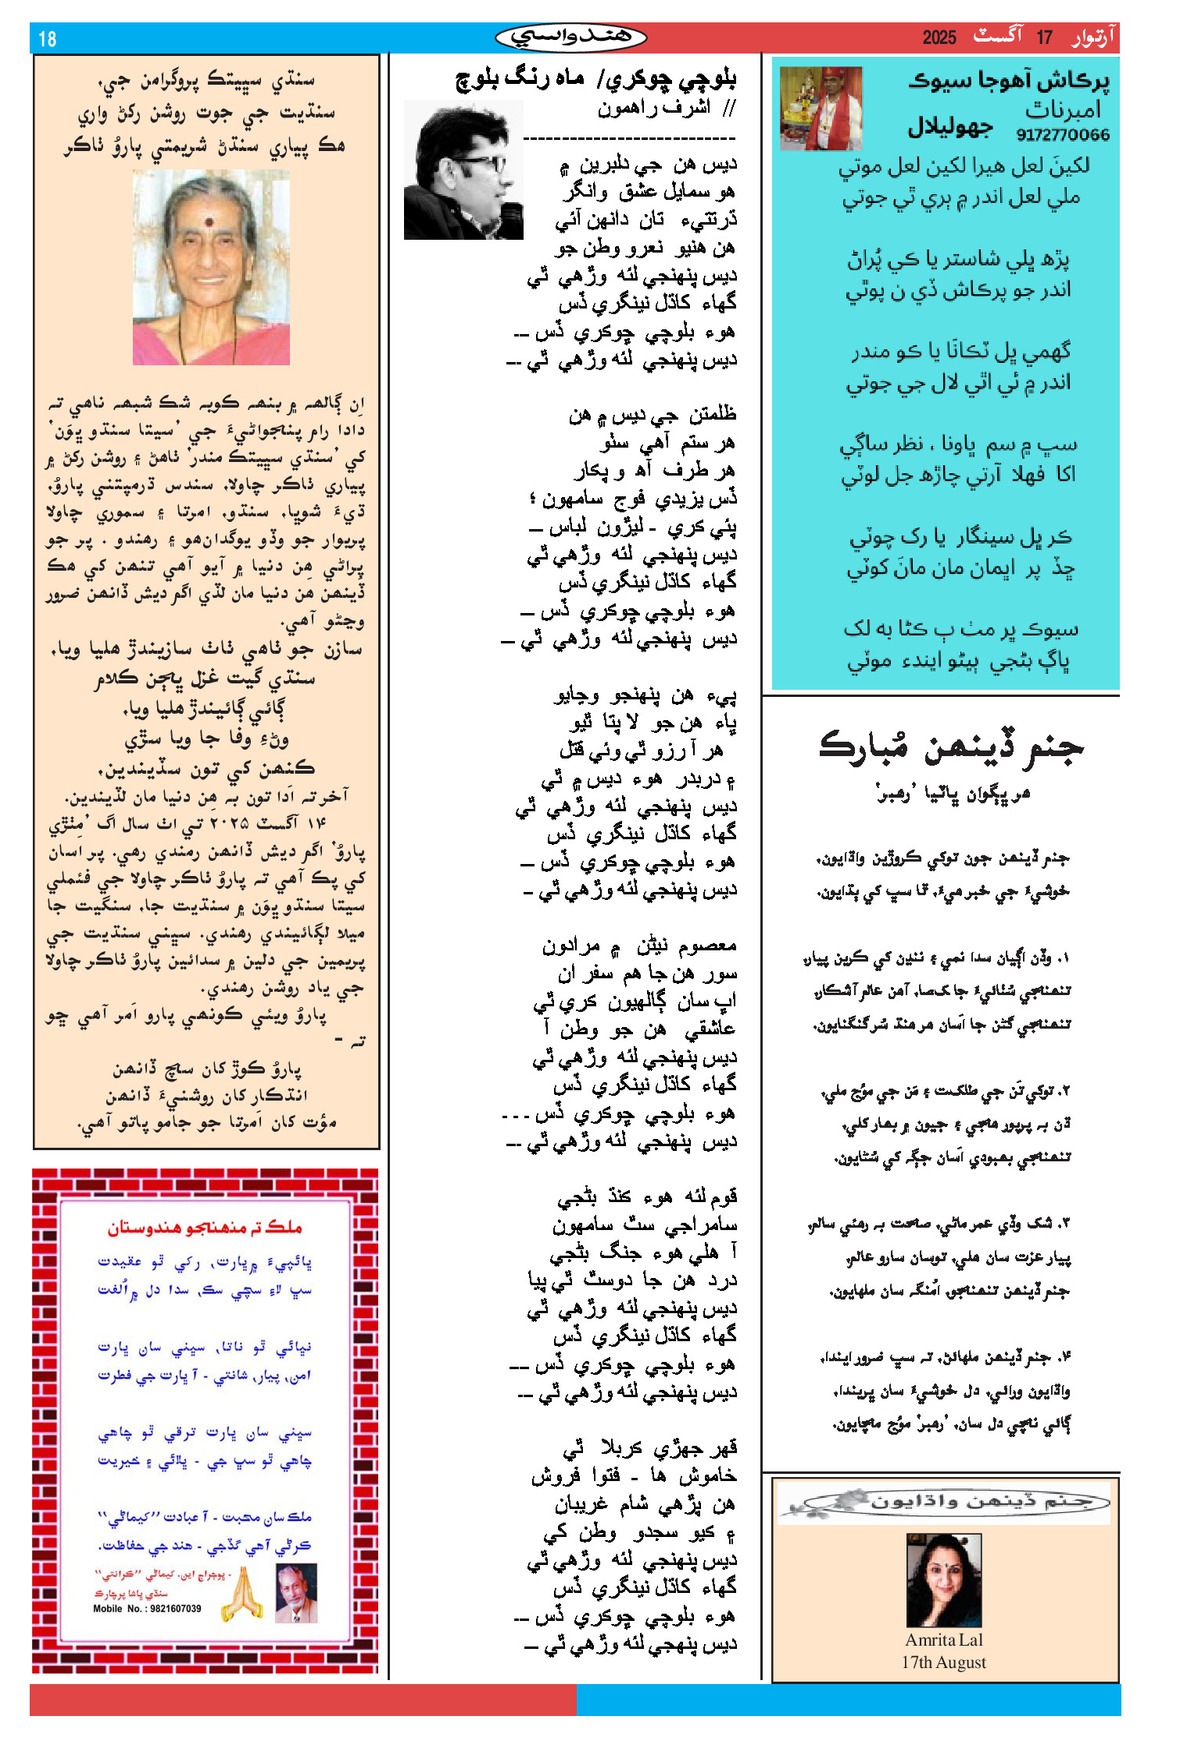 18
هندواسي
آرتوار 17 آگسٽ 2025
پرڪاش آهوجا سيوڪ
امبرناٿ
9172770066
جھوليلال
لکينَ لعل هيرا لکين لعل موتي
ملي لعل اندر ۾ ٻري ٿي جوتي
پڙھ ڀلي شاستر يا ڪي پُراڻ
اندر جو پرڪاش ڏي ن پوٿي
گھمي ڀل ٽڪاٽا يا ڪو مندر
اندر ۾ ئي اٿي لال جي جوتي
سڀ ۾ سم ڀاونا ، نظر ساڳي
اکا ڦهلا آرتي چاڙھ جل لوٽي
ڪر ڀل سينگار يا رک چوٽي
ڇڏ پر اڀمان مان مانَ کوٽي
سيوڪ ڀر مٺ ٻ ڪڻا به لک
ڀاڳ بڻجي ٻيٺو ايندءِ موٽي
جنم ڏينهن مُبارڪ
هر ڀڳوان ڀاٽيا ’رهبر‘
جنم ڏينهن جون توکي ڪروڙين واڌايون،
خوشيءَ جي خبر هيءَ، ٿا سڀ کي ٻڌايون.
۱. وڏن اڳيان سدا نمي ۽ ننڍن کي ڪرين پيار،
تنهنجي سُٺائيءَ جا قصا، آهن عالم آشڪار،
تنهنجي گڻن جا اَسان هر هنڌ سُر گنگنايون.
۲. توکي تَن جي طاقت ۽ مَن جي موُج ملي،
ڌن به ڀرپور هجي ۽ جيون ۾ بهار کلي،
تنهنجي بهبودي اَسان جڳہ کي سُڻايون.
۳. شڪ وڏي عمر ماڻي، صحت به رهئي سالم،
پيار عزت سان هلي، توسان سارو عالم،
جنم ڏينهن تنهنجو، اُمنگہ سان ملهايون.
۴. جنم ڏينهن ملهائڻ، تہ سڀ ضرور ايندا،
واڌايون ورائي، دل خوشيءَ سان ڀريندا،
ڳائي نچي دل سان، ’رهبر‘ موُج مچايون.
جنم ڏينهن واڌايون
Amrita Lal
17th August
بلوچي ڇوڪري/ ماه رنگ بلوچ
// اشرف راهمون
ديس هن جي دلبرين ۾
هو سمايل عشق وانگر
ڌرتتيء تان دانهن آئي
هن هنيو نعرو وطن جو
ديس پنهنجي لئه وڙهي ٿي
گهاء کاڌل نينگري ڏس
هوء بلوچي ڇوڪري ڏس --
ديس پنهنجي لئه وڙهي ٿي --
ظلمتن جي ديس ۾ هن
هر ستم آهي سٺو
هر طرف آه و پڪار
ڏس يزيدي فوج سامهون ؛
پئي ڪري - ليڙون لباس --
ديس پنهنجي لئه وڙهي ٿي
گهاء کاڌل نينگري ڏس
هوء بلوچي ڇوڪري ڏس --
ديس پنهنجي لئه وڙهي ٿي --
پيء هن پنهنجو وڃايو
ڀاء هن جو لا پتا ٿيو
هر آ رزو ٿي وئي قتل
۽ دربدر هوء ديس ۾ ٿي
ديس پنهنجي لئه وڙهي ٿي
گهاء کاڌل نينگري ڏس
هوء بلوچي ڇوڪري ڏس --
ديس پنهنجي لئه وڙهي ٿي --
معصوم نيڻن ۾ مرادون
سور هن جا هم سفر ان
اڀ سان ڳالهيون ڪري ٿي
عاشقي هن جو وطن آ
ديس پنهنجي لئه وڙهي ٿي
گهاء کاڌل نينگري ڏس
هوء بلوچي ڇوڪري ڏس - - -
ديس پنهنجي لئه وڙهي ٿي --
قوم لئه هوء ڪنڌ بڻجي
سامراجي سٽ سامهون
آ هلي هوء جنگ بڻجي
درد هن جا دوست ٿي پيا
ديس پنهنجي لئه وڙهي ٿي
گهاء کاڌل نينگري ڏس
هوء بلوچي ڇوڪري ڏس --
ديس پنهنجي لئه وڙهي ٿي --
قهر جهڙي ڪربلا ٿي
خاموش ها - فتوا فروش
هن پڙهي شام غريبان
۽ ڪيو سجدو وطن کي
ديس پنهنجي لئه وڙهي ٿي
گهاء کاڌل نينگري ڏس
هوء بلوچي ڇوڪري ڏس --
ديس پنهجي لئه وڙهي ٿي --
سنڌي سڀيتڪ پروگرامن جي،
سنڌيت جي جوت روشن رکڻ واري
هڪ پياري سنڌڻ شريمتي پاروُ ٺاڪر
اِن ڳالهہ ۾ بنهہ ڪوبہ شڪ شبهہ ناهي تہ
دادا رام پنجواڻيءَ جي ’سيتا سنڌو ڀوَن‘
کي ’سنڌي سڀيتڪ مندر‘ ٺاهڻ ۽ روشن رکڻ ۾
پياري ٺاڪر چاولا، سندس ڌرمپتني پاروُ،
ڌيءَ شوڀا، سنڌو، امرتا ۽ سموري چاولا
پريوار جو وڏو يوگدان هو ۽ رهندو . پر جو
پراڻي هِن دنيا ۾ آيو آهي تنهن کي هڪ
ڏينهن هن دنيا مان لڏي اگم ديش ڏانهن ضرور
وڃڻو آهي.
سازن جو ٺاهي ٺاٺ سازيندڙ هليا ويا،
سنڌي گيت غزل ڀڄن ڪلام
ڳائي ڳائيندڙ هليا ويا،
وڻءِ وفا جا ويا سڙي
ڪنهن کي تون سڏيندين،
آخر تہ اَدا تون بہ هِن دنيا مان لڏيندين.
۱۴ آگسٽ ۲۰۲۵ تي اٺ سال اڳ ’مِٺڙي
پاروُ‘ اگم ديش ڏانهن رمندي رهي. پر اَسان
کي پڪ آهي تہ پاروُ ٺاڪر چاولا جي فئملي
سيتا سنڌو ڀوَن ۾ سنڌيت جا، سنگيت جا
ميلا لڳائيندي رهندي. سڀني سنڌيت جي
پريمين جي دلين ۾ سدائين پاروُ ٺاڪر چاولا
جي ياد روشن رهندي.
پاروُ ويئي ڪونهي پارو اَمر آهي ڇو
تہ –
پاروُ ڪوڙ کان سچ ڏانهن
انڌڪار کان روشنيءَ ڏانهن
مؤت کان اَمرتا جو جامو پاتو آهي.
ملڪ تہ منهنجو هندوستان
ڀائپيءَ ۾ ڀارت، رکي ٿو عقيدت
سڀ لاءِ سچي سڪ، سدا دل ۾ اُلفت
نڀائي ٿو ناتا، سڀني سان ڀارت
امن، پيار، شانتي - آ ڀارت جي فطرت
سڀني سان ڀارت ترقي ٿو چاهي
چاهي ٿو سڀ جي - ڀلائي ۽ خيريت
ملڪ سان محبت - آ عبادت ”کيماڻي“
ڪرڻي آهي گڏجي - هند جي حفاظت.
- ڀوڄراج اين. کيماڻي ”ڪرانتي“
سنڌي ڀاشا پرچارڪ
Mobile No. : 9821607039